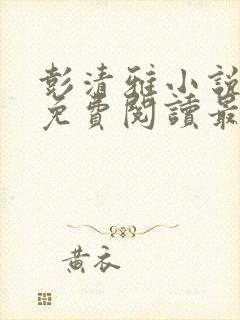 彭清雅小說
免費閱讀最
黃衣